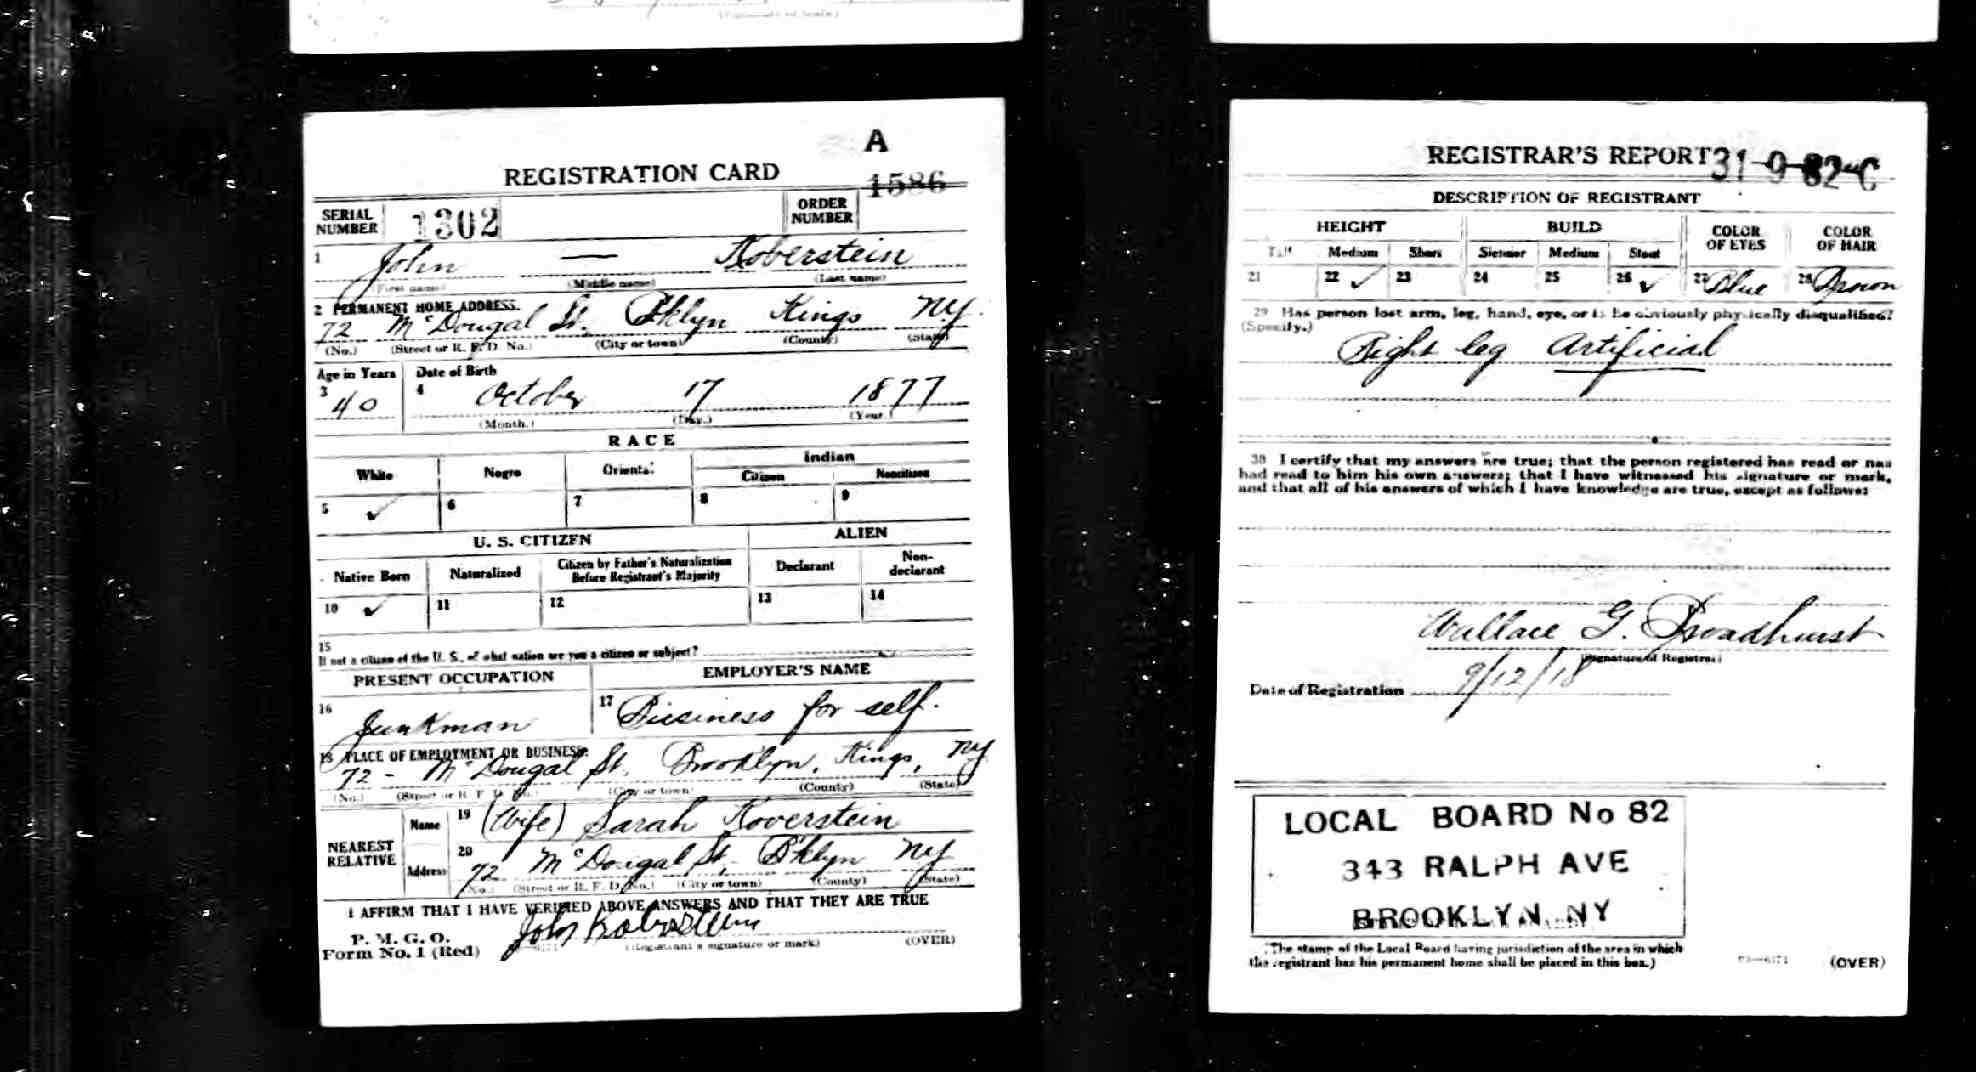 REGISTRATION CARD
A
1586
SERIAL NUMBER 1302 ORDER NUMBER
1 John — Koberstein
(First name) (Middle name) (Last name)
2 PERMANENT HOME ADDRESS.
72 McDougal St. Bklyn Kings NY.
(No.) (Street or R. F. D. No.) (City or town) (County) (State)
Age in Years Date of Birth
3 40 4 October 17 1877
(Month.) (Day.) (Year.)
RACE
White Negro Oriental Indian
Citizen Noncitizen
5 ✓ 6 7 8 9
U. S. CITIZEN ALIEN
Native Born Naturalized Citizen by Father's Naturalization Before Registrant's Majority Declarant Non-declarant
10 ✓ 11 12 13 14
15
If not a citizen of the U. S., of what nation are you a citizen or subject?
PRESENT OCCUPATION EMPLOYER'S NAME
16 Junkman 17 Business for self.
18 PLACE OF EMPLOYMENT OR BUSINESS:
72 - McDougal St. Brooklyn, Kings, NY
(No.) (Street or R. F. D. No.) (City or town) (County) (State)
NEAREST RELATIVE Name 19 (Wife) Sarah Koverstein
Address 20 72 McDougal St, Bklyn NY
(No.) (Street or R. F. D. No.) (City or town) (County) (State)
I AFFIRM THAT I HAVE VERIFIED ABOVE ANSWERS AND THAT THEY ARE TRUE
P. M. G. O.
Form No. 1 (Red) John Koberstein
(Registrant's signature or mark) (OVER)
REGISTRAR'S REPORT 31-9-82-C
DESCRIPTION OF REGISTRANT
HEIGHT BUILD COLOR OF EYES COLOR OF HAIR
Tall Medium Short Slender Medium Stout
21 22 ✓ 23 24 25 26 ✓ 27 Blue 28 Brown
29 Has person lost arm, leg, hand, eye, or is he obviously physically disqualified?
(Specify.)
Right leg Artificial
30 I certify that my answers are true; that the person registered has read or has
had read to him his own answers; that I have witnessed his signature or mark,
and that all of his answers of which I have knowledge are true, except as follows:
Wallace G. Broadhurst
(Signature of Registrar)
Date of Registration 9/12/18
LOCAL BOARD No 82
343 RALPH AVE
BROOKLYN. NY
(The stamp of the Local Board having jurisdiction of the area in which
the registrant has his permanent home shall be placed in this box.)
(OVER)